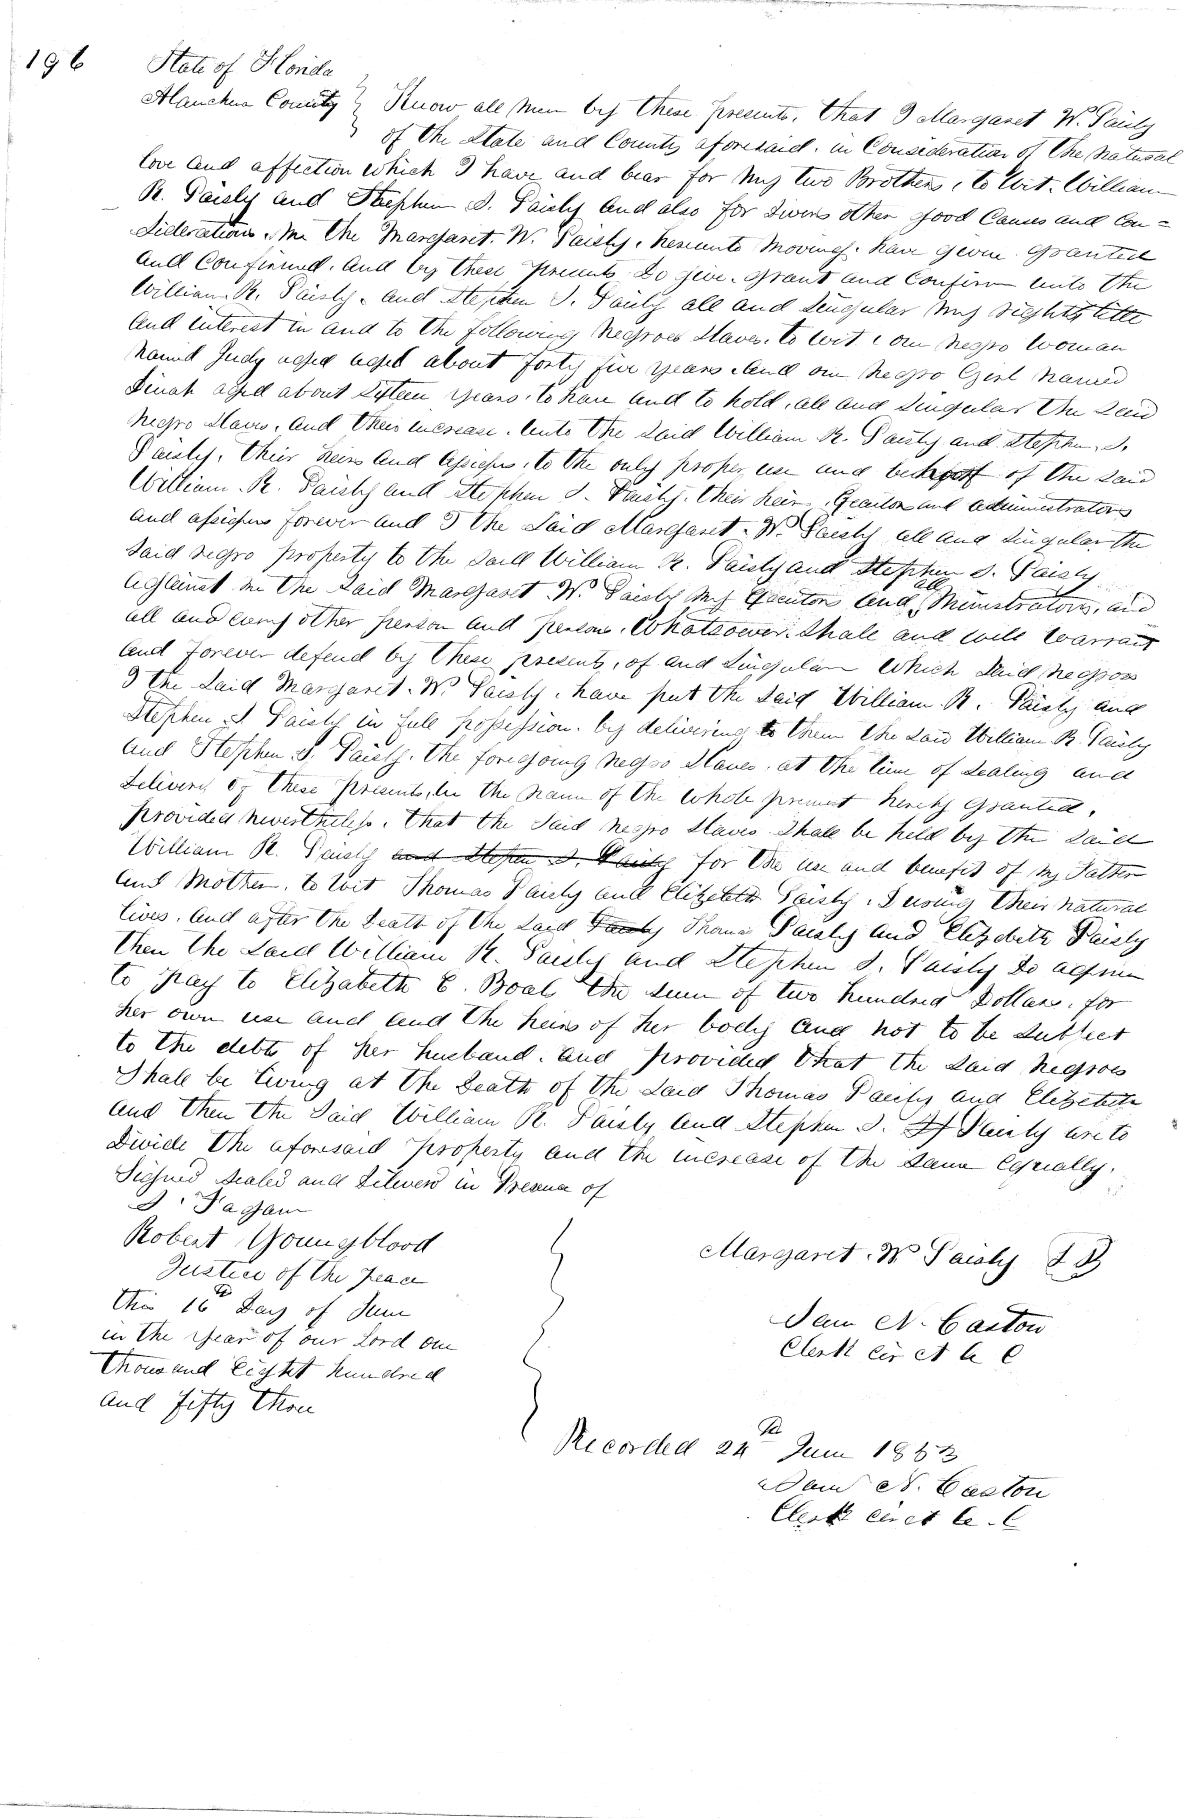 196
State of Florida
Alanchua County } Know all men by these presents, that I Margaret W. Paisly
of the State and County aforesaid, in Consideration of the natural
love and affection which I have and bear for my two Brothers, to wit. William
R. Paisly and Stephen S. Paisly and also for divers other good Causes and Con=
sideration. Me the Margaret. W. Paisly. hereunto moving. have given granted
and Confirmed. And by these presents do give. grant and Confirm unto the
William R. Paisly. and Stephen S. Paisly all and Singular my rights title
and interest in and to the following Negroes Slaves. to wit. one negro woman
named Judy aged aged about forty five years. And one negro Girl named
Dinah aged about Sixteen years. to have and to hold. all and Singular the said
negro slaves. and their increase. unto the said William R. Paisly and Stephen. S.
Paisly. their heirs and assigns. to the only proper use and behoof of the said
William. R. Paisly and Stephen S. Paisly. their heirs. Executors and administrators
and assigns forever and I the Said Margaret. W. Paisly all and Singular the
said negro property to the said William R. Paisly and Stephen S. Paisly
against me the said Margaret. W. Paisly my Executors and ad Ministrators, and
all and every other person and persons. Whatsoever. Shall and will warrant
and forever defend by these presents, of and Singular which said negroes
I the Said Margaret. W. Paisly. have put the said William R. Paisly and
Stephen S Paisly in full possession. by delivering to them the said William R. Paisly
and Stephen S. Paisly. the foregoing negro Slaves. at the time of sealing and
delivery of these presents, in the name of the whole hereby granted.
provided nevertheless. that the said negro slaves shall be held by the said
William R. Paisly and Stepen S. Paisly for the use and benefit of my Father
and Mother. to wit Thomas Paisly and Elizebeth Paisly. During their natural
lives. and after the death of the said Paisly Thomas Paisly and Elizebeth Paisly
then the said William R. Paisly and Stephen S. Paisly do agree
to pay to Elizabeth C. Boals the sum of two hundred Dollars. for
her own use and and the heirs of her body and not to be subject
to the debts of her husband. and provided that the said negroes
Shall be living at the death of the said Thomas Paisly and Elizebeth
and then the said William R. Paisly and Stephen S. Paisly are to
divide the aforesaid property and the increase of the same equally.
Signed sealed and delivered in Presence of
Fagan
Robert Youngblood
Justice of the peace
this 16th Day of June
in the year of our Lord one
thousand Eight hundred
and fifty three
Margaret. W Paisly
Sam N. Caston
Clerk Cir ct A C
Recorded 24th June 1853
Sam N. Caston
Clerk circt A. C